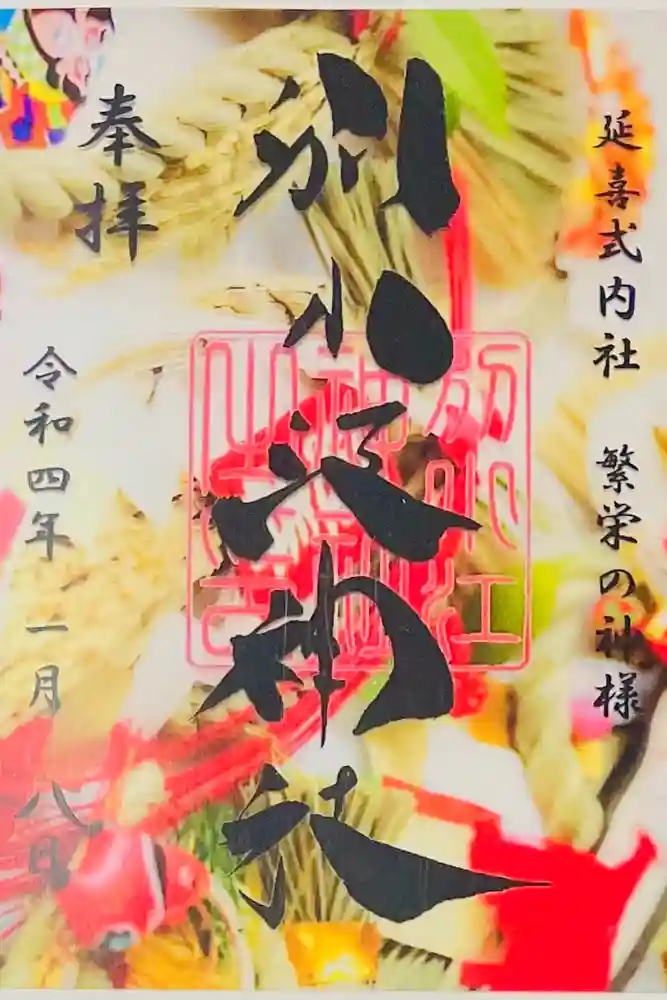 延喜式内社 繁栄の神様
別小江神社
別小江
神社
奉拝
令和四年 一月 八日